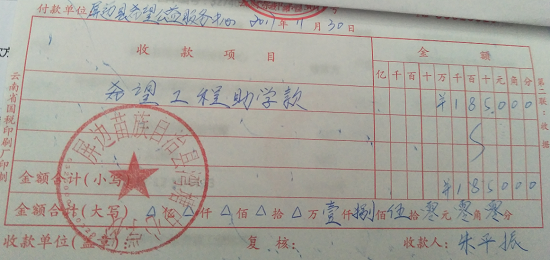 付款单位 屏边县希望公益服务中心 2017年11月30日
收款项目 金额
亿千百十万千百十元角分
希望工程助学款 ¥185000
金额合计(小写) ¥185000
金额合计(大写) △亿△仟△佰△拾△万壹仟捌佰伍拾零元零角零分
收款单位(盖章): 复核: 收款人: 朱平振
云南省国税印刷厂印制
第二联:收据
屏边苗族自治县